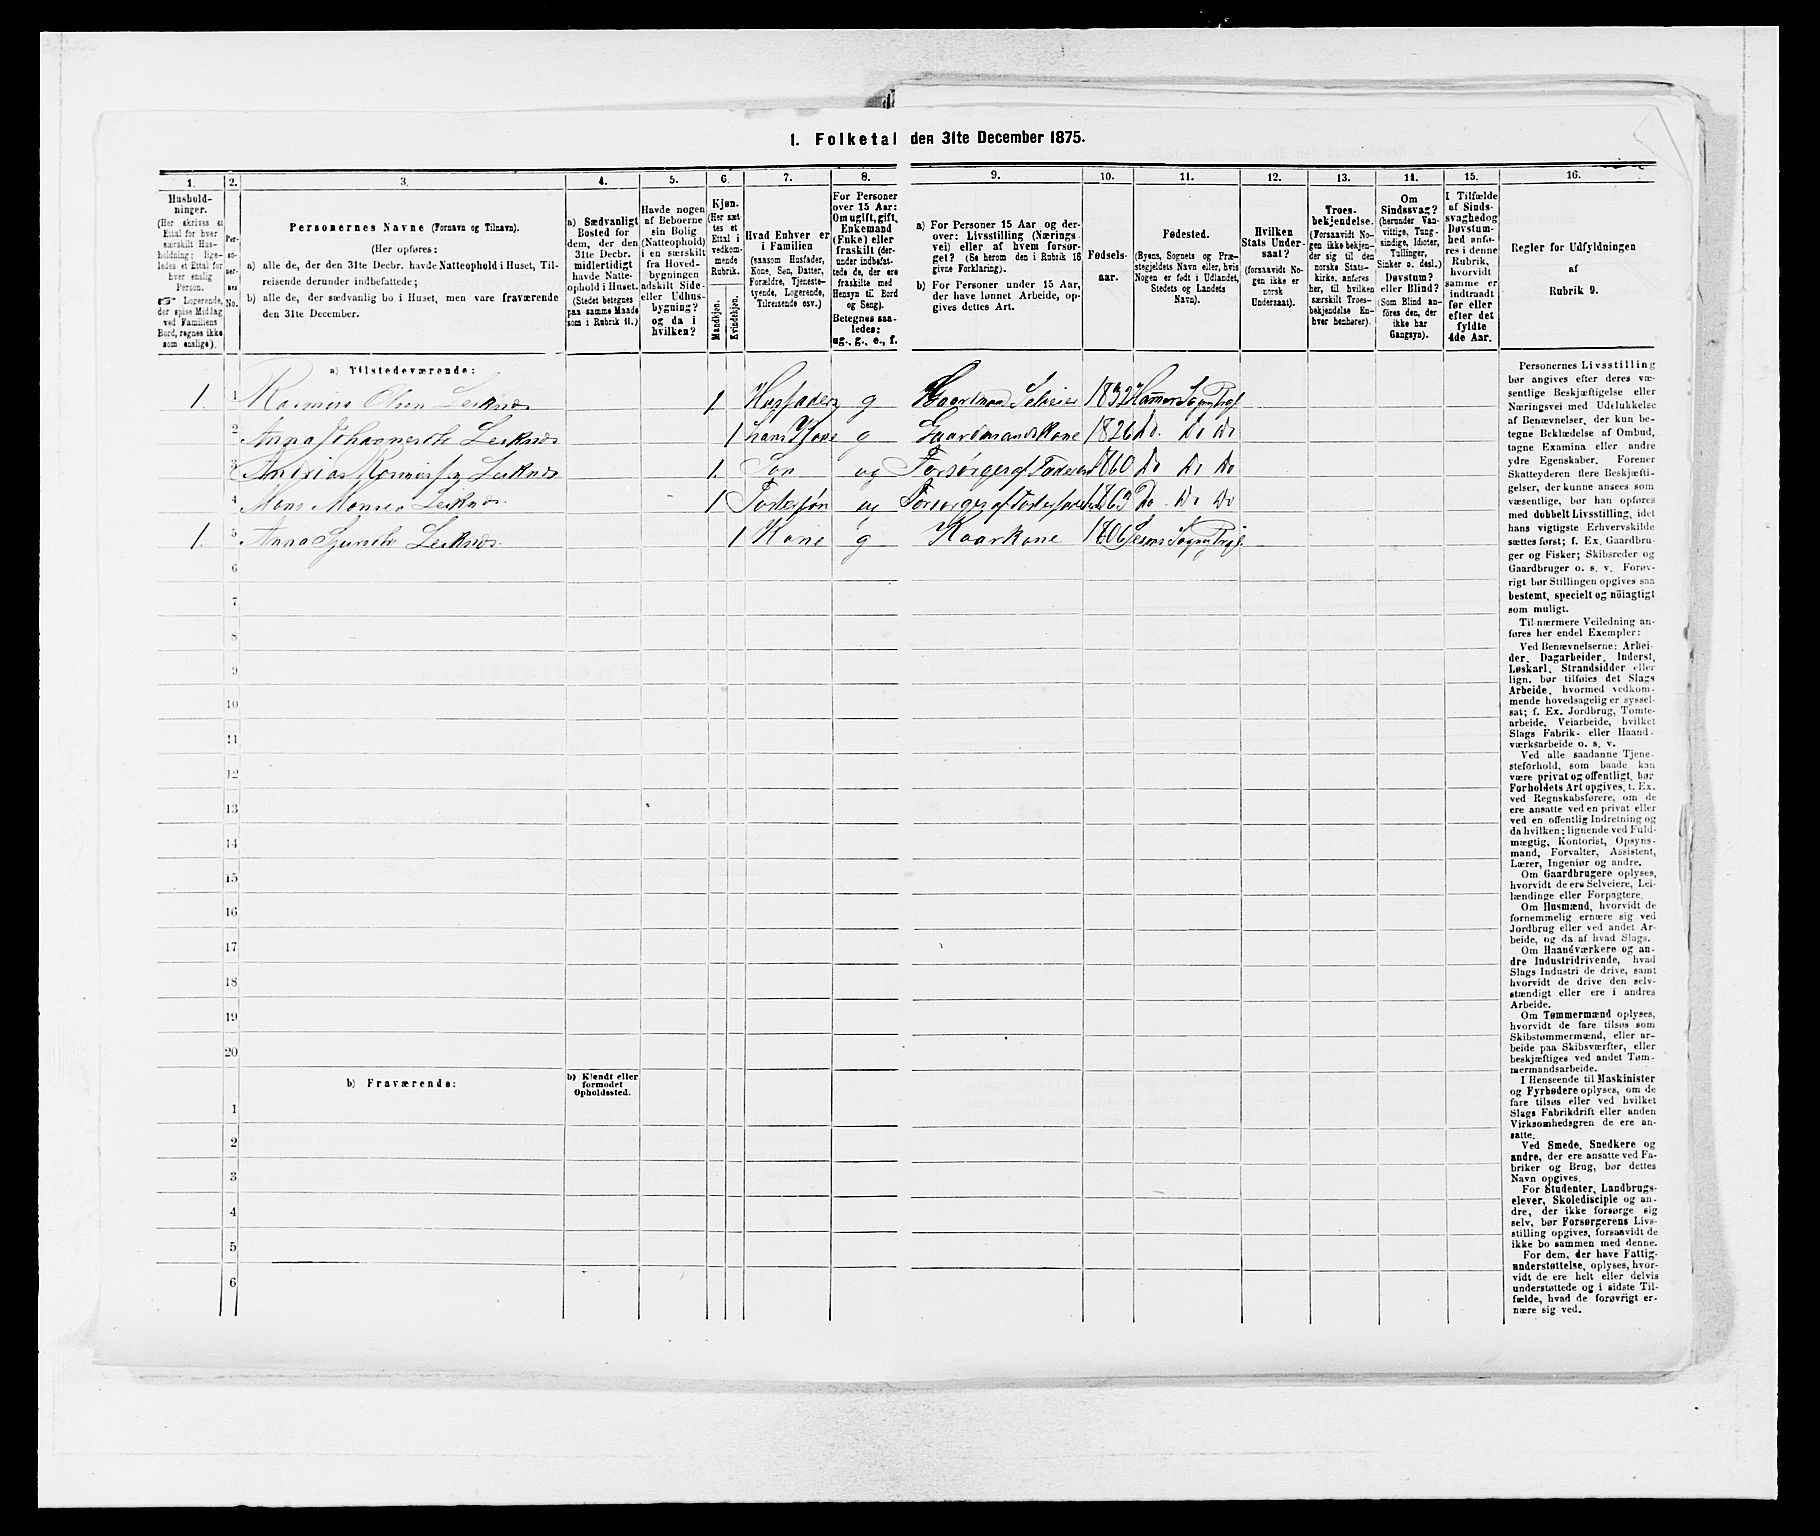 I. Folketal den 31te December 1875.
1. 2. 3. 4. 5. 6. 7. 8. 9. 10. 11. 12. 13. 14. 15. 16.
Husholdninger.
(Her skrives et
Ettal for hver
særskilt Husholdning;
ligeledes et Ettal for
hver enslig
Person.
☞ Logerende,
der spise Middag
ved Familiens
Bord, regnes ikke
som enslige).
Personernes No.
Personernes Navne (Fornavn og Tilnavn).
(Her opføres:
a) alle de, der den 31te Decbr. havde Natteophold i Huset, Tilreisende derunder indbefattede;
b) alle de, der sædvanlig bo i Huset, men vare fraværende
den 31te December.
a) Sædvanligt
Bosted for
dem, der den
31te Decbr.
midlertidigt
havde Natteophold
i Huset.
(Stedet betegnes
paa samme Maade
som i Rubrik 11.)
Havde nogen
af Beboerne
sin Bolig
(Natteophold)
i en særskilt
fra Hovedbygningen
adskilt Side-
eller Udhusbygning?
og da i
hvilken?
Kjøn.
(Her sættes et
Ettal i
vedkommende
Rubrik.
Mandkjøn.
Kvindekjøn.
Hvad Enhver er
i Familien
(saasom Husfader,
Kone, Søn, Datter,
Forældre, Tjenestetyende,
Logerende,
Tilreisende osv.)
For Personer
over 15 Aar:
Om ugift, gift,
Enkemand
(Enke) eller
fraskilt (derunder
indbefattede
de, der ere
fraskilte med
Hensyn til Bord
og Seng).
Betegnes saaledes:
ug., g., e., f.
a) For Personer 15 Aar og derover:
Livsstilling (Næringsvei)
eller af hvem forsørget?
(Se herom den i Rubrik 16
givne Forklaring).
b) For Personer under 15 Aar,
der have lønnet Arbeide, opgives
dettes Art.
Fødselsaar.
Fødested.
(Byens, Sognets og Præstegjeldets
Navn eller, hvis
Nogen er født i Udlandet,
Stedets og Landets
Navn).
Hvilken
Stats Undersaat?
(forsaavidt Nogen
ikke er
norsk
Undersaat).
Troesbekjendelse.
(Forsaavidt Nogen
ikke bekjender
sig til den
norske Statskirke,
anføres
her, til hvilken
særskilt Troesbekjendelse
Enhver
henhører).
Om
Sindssvag?
(herunder Vanvittige,
Tungsindige,
Idioter,
Tullinger,
Sinker o. desl.)
Døvstum?
eller Blind?
(Som Blind anføres
den, der
ikke har
Gangsyn).
I Tilfælde
af Sindssvaghed og
Døvstumhed
anføres
i denne
Rubrik,
hvorvidt
samme er
indtraadt
før eller
efter det
fyldte
4de Aar.
Regler for Udfyldningen
af
Rubrik 9.
a) Tilstedeværende:
1. 1 Rasmus Olsen Leeknes 1. Husfader g Gaardmand Selveier 1832 Hammer Sogn
2 Anna Johannesdtr Leeknes 1 hans Kone g Gaardmandskone 1826 Do. Do Do
3 Leeknes 1. Søn ug Forsørges af Faderen 1860 Do Do Do
4 Mons Monsen Leeknes. 1 Fostersøn ug Forsørges af Fosterfaderen Do. Do Do
1. 5 Anna Leeknes. 1 Kone g Kaarkone 1806 Sogn
6
7
8
9
10
11
12
13
14
15
16
17
18
19
20
b) Fraværende:
b) Kjendt eller
formodet
Opholdssted.
1
2
3
4
5
6
Personernes Livsstilling
bør angives efter deres væsentlige
Beskjæftigelse eller
Næringsvei med Udelukkelse
af Benævnelser, der kun betegne
Beklædelse af Ombud,
tagne Examina eller andre
ydre Egenskaber. Forener
Skatteyderen flere Beskjæftigelser,
der kunne ansees som
væsentlige, bør han opføres
med dobbelt Livsstilling, idet
hans vigtigste Erhvervskilde
sættes først; f. Ex. Gaardbruger
og Fisker; Skibsreder og
Gaardbruger o. s. v. Forøvrigt
bør Stillingen opgives saa
bestemt, specielt og nöiagtigt
som muligt.
Til nærmere Veiledning anføres
her endel Exempler:
Ved Benævnelserne: Arbeider,
Dagarbeider, Inderst,
Løskarl, Strandsidder eller
lign. bør tilføies det Slags
Arbeide, hvormed vedkommende
hovedsagelig er sysselsat;
f. Ex. Jordbrug, Tomtearbeide,
Veiarbeide, hvilket
Slags Fabrik- eller Haandværksarbeide
o. s. v.
Ved alle saadanne Tjenesteforhold,
som baade kan
være privat og offentligt, bør
Forholdets Art opgives, t. Ex.
ved Regnskabsførere, om de
ere ansatte ved en privat eller
ved en offentlig Indretning og
da hvilken; lignende ved Fuldmægtig,
Kontorist, Opsynsmand,
Forvalter, Assistent,
Lærer, Ingeniør og andre.
Om Gaardbrugere oplyses,
hvorvidt de ere Selveiere, Leilændinge
eller Forpagtere.
Om Husmænd, hvorvidt de
fornemmelig ernære sig ved
Jordbrug eller ved andet Arbeide,
og da af hvad Slags.
Om Haandværkere og andre
Industridrivende, hvad
Slags Industri de drive, samt
hvorvidt de drive den selvstændigt
eller ere i andres
Arbeide.
Om Tømmermænd oplyses,
hvorvidt de fare tilsøs som
Skibstømmermænd, eller arbeide
paa Skibsværfter, eller
beskjæftiges ved andet Tømmermandsarbeide.
I Henseende til Maskinister
og Fyrbødere oplyses, om de
fare tilsøs eller ved hvilket
Slags Fabrikdrift eller anden
Virksomhedsgren de ere ansatte.
Ved Smede, Snedkere og
andre, der ere ansatte ved Fabriker
og Brug, bør dettes
Navn opgives.
For Studenter, Landbrugselever,
Skoledisciple og andre,
der ikke forsørge sig
selv, bør Forsørgerens Livsstilling
opgives, forsaavidt de
ikke bo sammen med denne.
For dem, der have Fattigunderstøttelse,
oplyses, hvorvidt
de ere helt eller delvis
understøttede og i sidste Tilfælde,
hvad de forøvrigt ernære
sig ved.